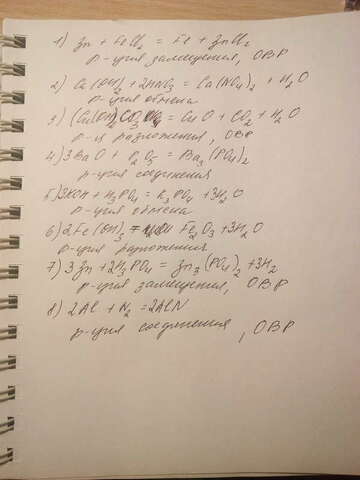 1) Zn + FeCl₂ = Fe + ZnCl₂
р-ция замещения, ОВР
2) Ca(OH)₂ + 2HNO₃ = Ca(NO₃)₂ + H₂O
р-ция обмена
3) (CuOH)₂CO₃ = CuO + CO₂ + H₂O
р-я разложения, ОВР
4) 3BaO + P₂O₅ = Ba₃(PO₄)₂
р-ция соединения
5) 3KOH + H₃PO₄ = K₃PO₄ + 3H₂O
р-ция обмена
6) 2Fe(OH)₃ = Fe₂O₃ + 3H₂O
р-ция разложения
7) 3Zn + 2H₃PO₄ = Zn₃(PO₄)₂ + 3H₂
р-ция замещения, ОВР
8) 2Al + N₂ = 2AlN
р-ция соединения, ОВР